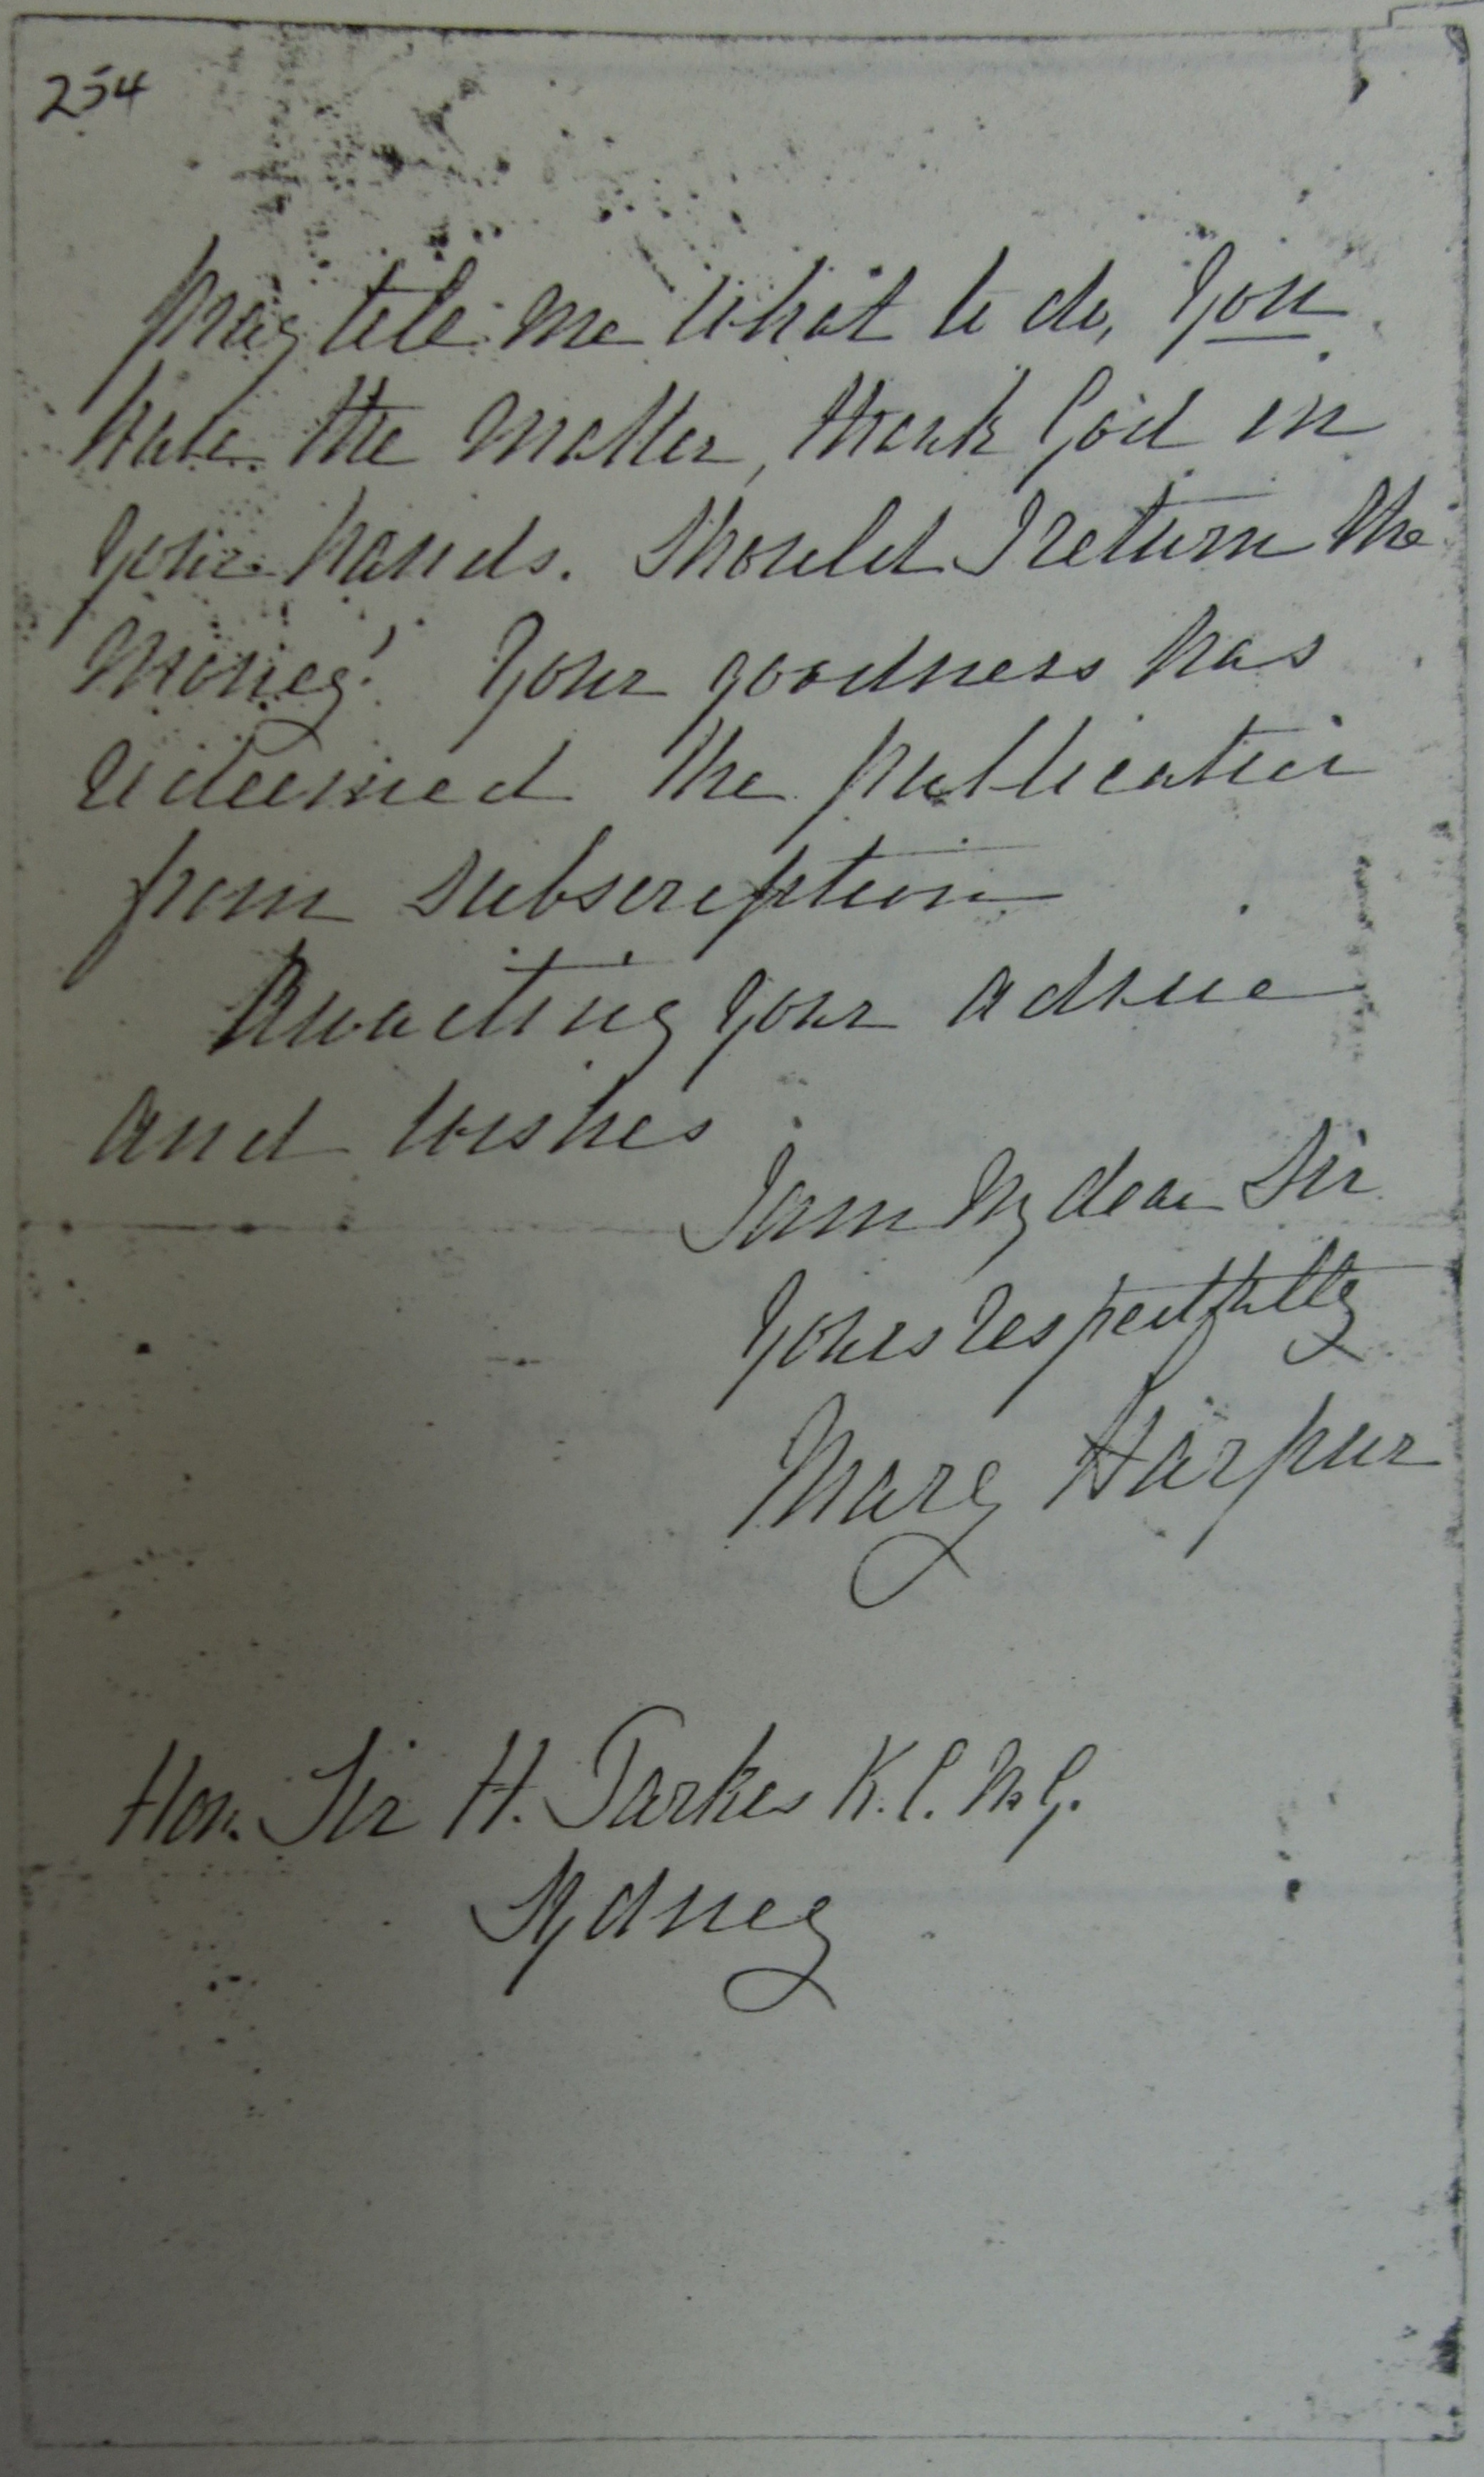 254
pray tell me what to do, you
have the matter, thank God in
your hands. Should I return the
money! Your goodness has
redeemed the publication
from subscription
Awaiting your advice
and wishes
I am My dear Sir
Yours respectfully
Mary Harpur
Hon. Sir H. Parkes K.C.M.G.
Sydney